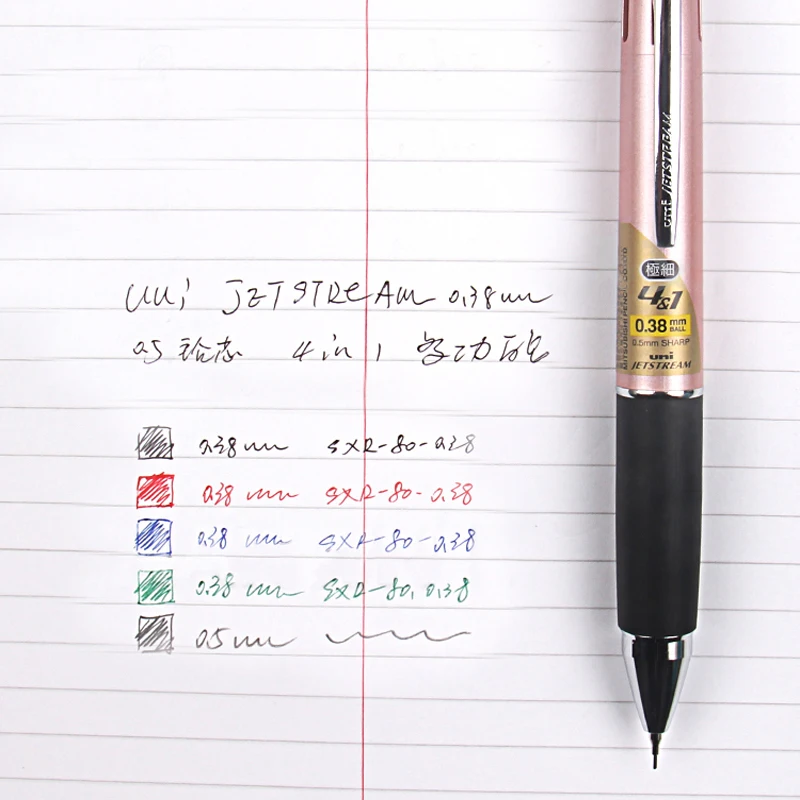 uni JETSTREAM 0.38mm
0.5 铅芯 4 in 1 多功能
0.38mm SXR-80-0.38
0.38 mm SXR-80-0.38
0.38 mm SXR-80-0.38
0.38 mm SXR-80.0.38
0.5mm
uni JETSTREAM
極細
4&1
0.38 mm BALL
0.5mm SHARP
uni
JETSTREAM
MITSUBISHI PENCIL CO.,LTD